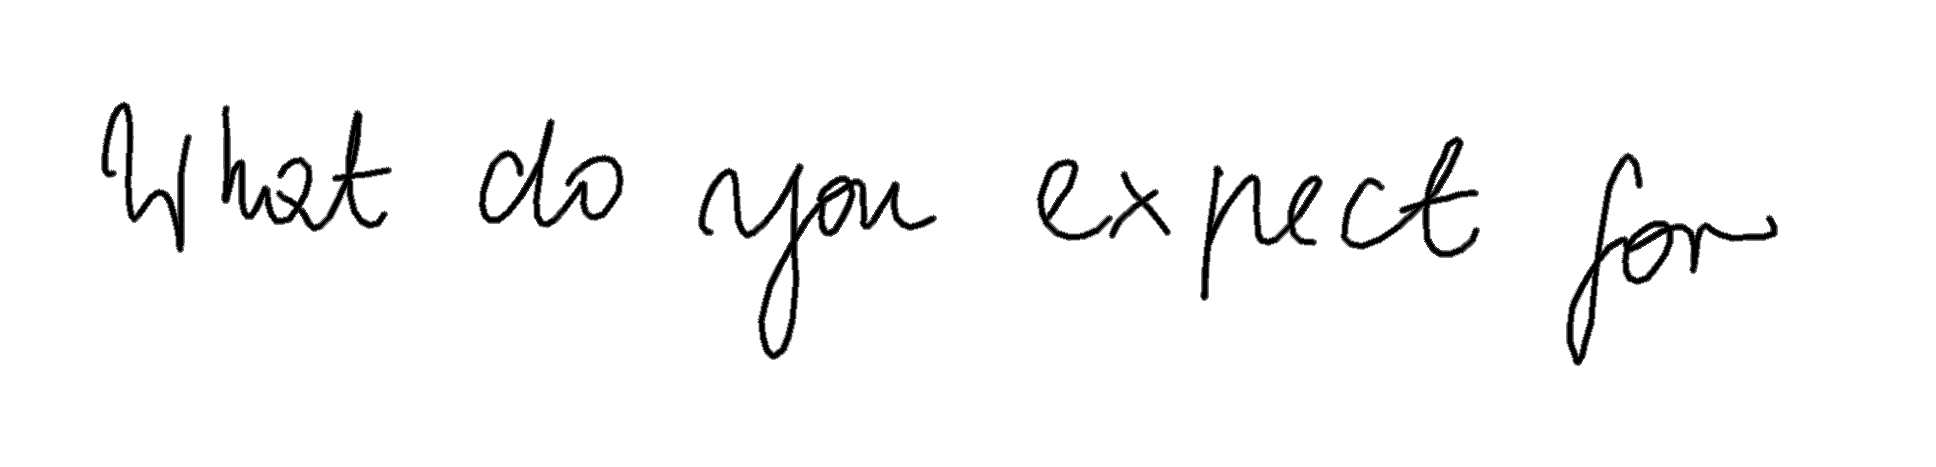 What do you expect for